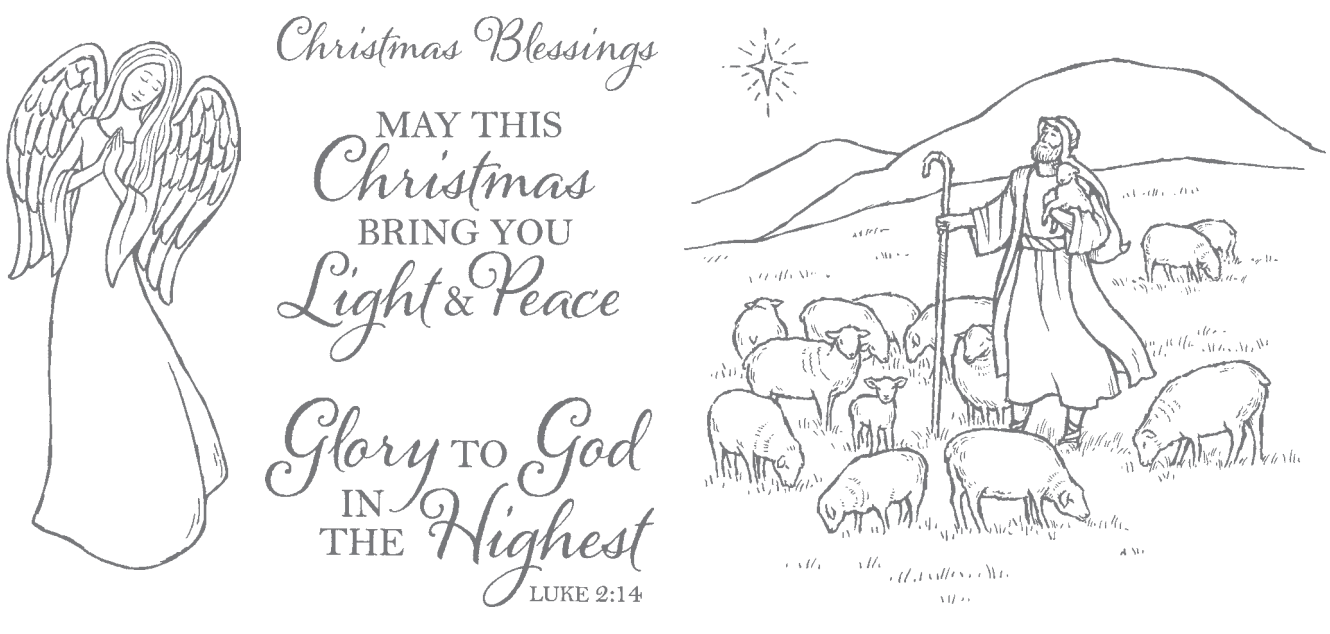 Christmas Blessings
MAY THIS
Christmas
BRING YOU
Light & Peace
Glory TO God
IN
THE Highest
LUKE 2:14